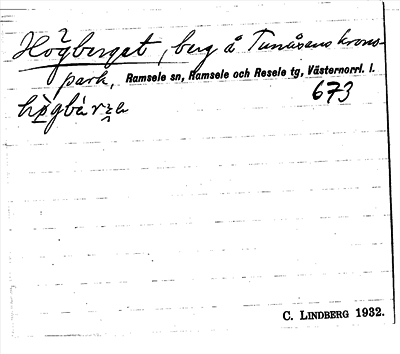 Högberget, berg å Tunåsens krons-
park, Ramsele sn, Ramsele och Resele tg, Västernorrl. l.
673
C. LINDBERG 1932.